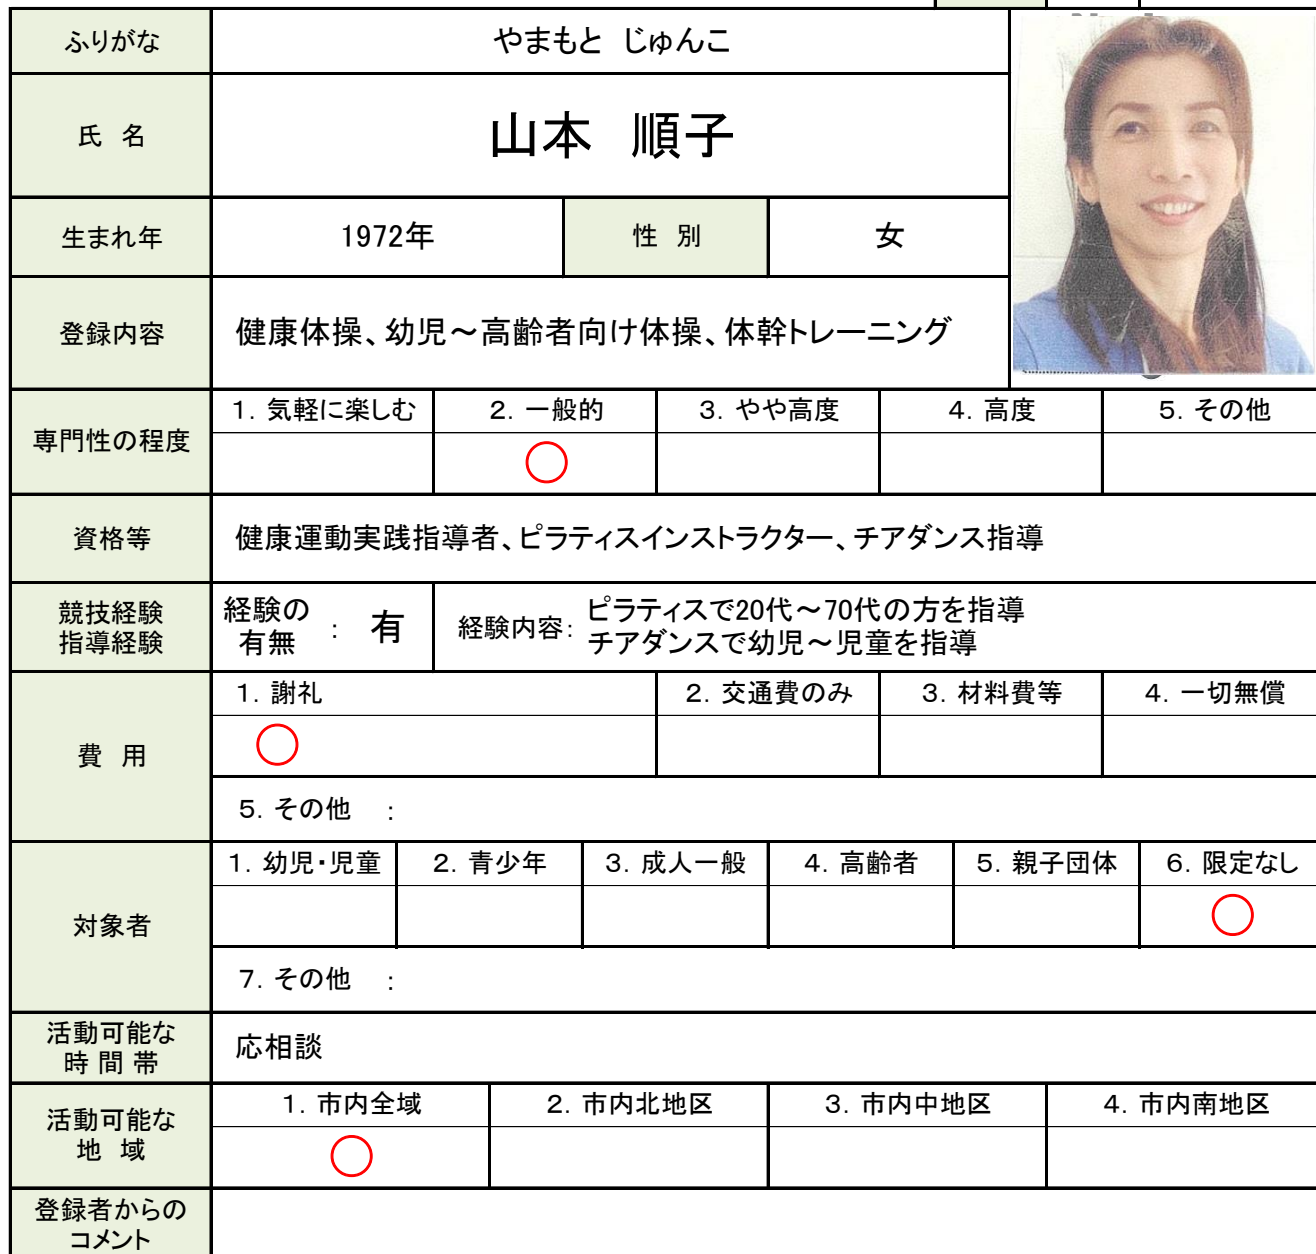 ふりがな　やまもと じゅんこ
氏 名　山本 順子
生まれ年　1972年　性 別　女
登録内容　健康体操、幼児～高齢者向け体操、体幹トレーニング
専門性の程度　1. 気軽に楽しむ　2. 一般的　3. やや高度　4. 高度　5. その他
○
資格等　健康運動実践指導者、ピラティスインストラクター、チアダンス指導
競技経験
指導経験
経験の
有無　：　有
経験内容：
ピラティスで20代～70代の方を指導
チアダンスで幼児～児童を指導
費 用　1. 謝礼　2. 交通費のみ　3. 材料費等　4. 一切無償
○
5. その他　：
対象者　1. 幼児・児童　2. 青少年　3. 成人一般　4. 高齢者　5. 親子団体　6. 限定なし
○
7. その他　：
活動可能な
時 間 帯
応相談
活動可能な
地 域
1. 市内全域　2. 市内北地区　3. 市内中地区　4. 市内南地区
○
登録者からの
コメント